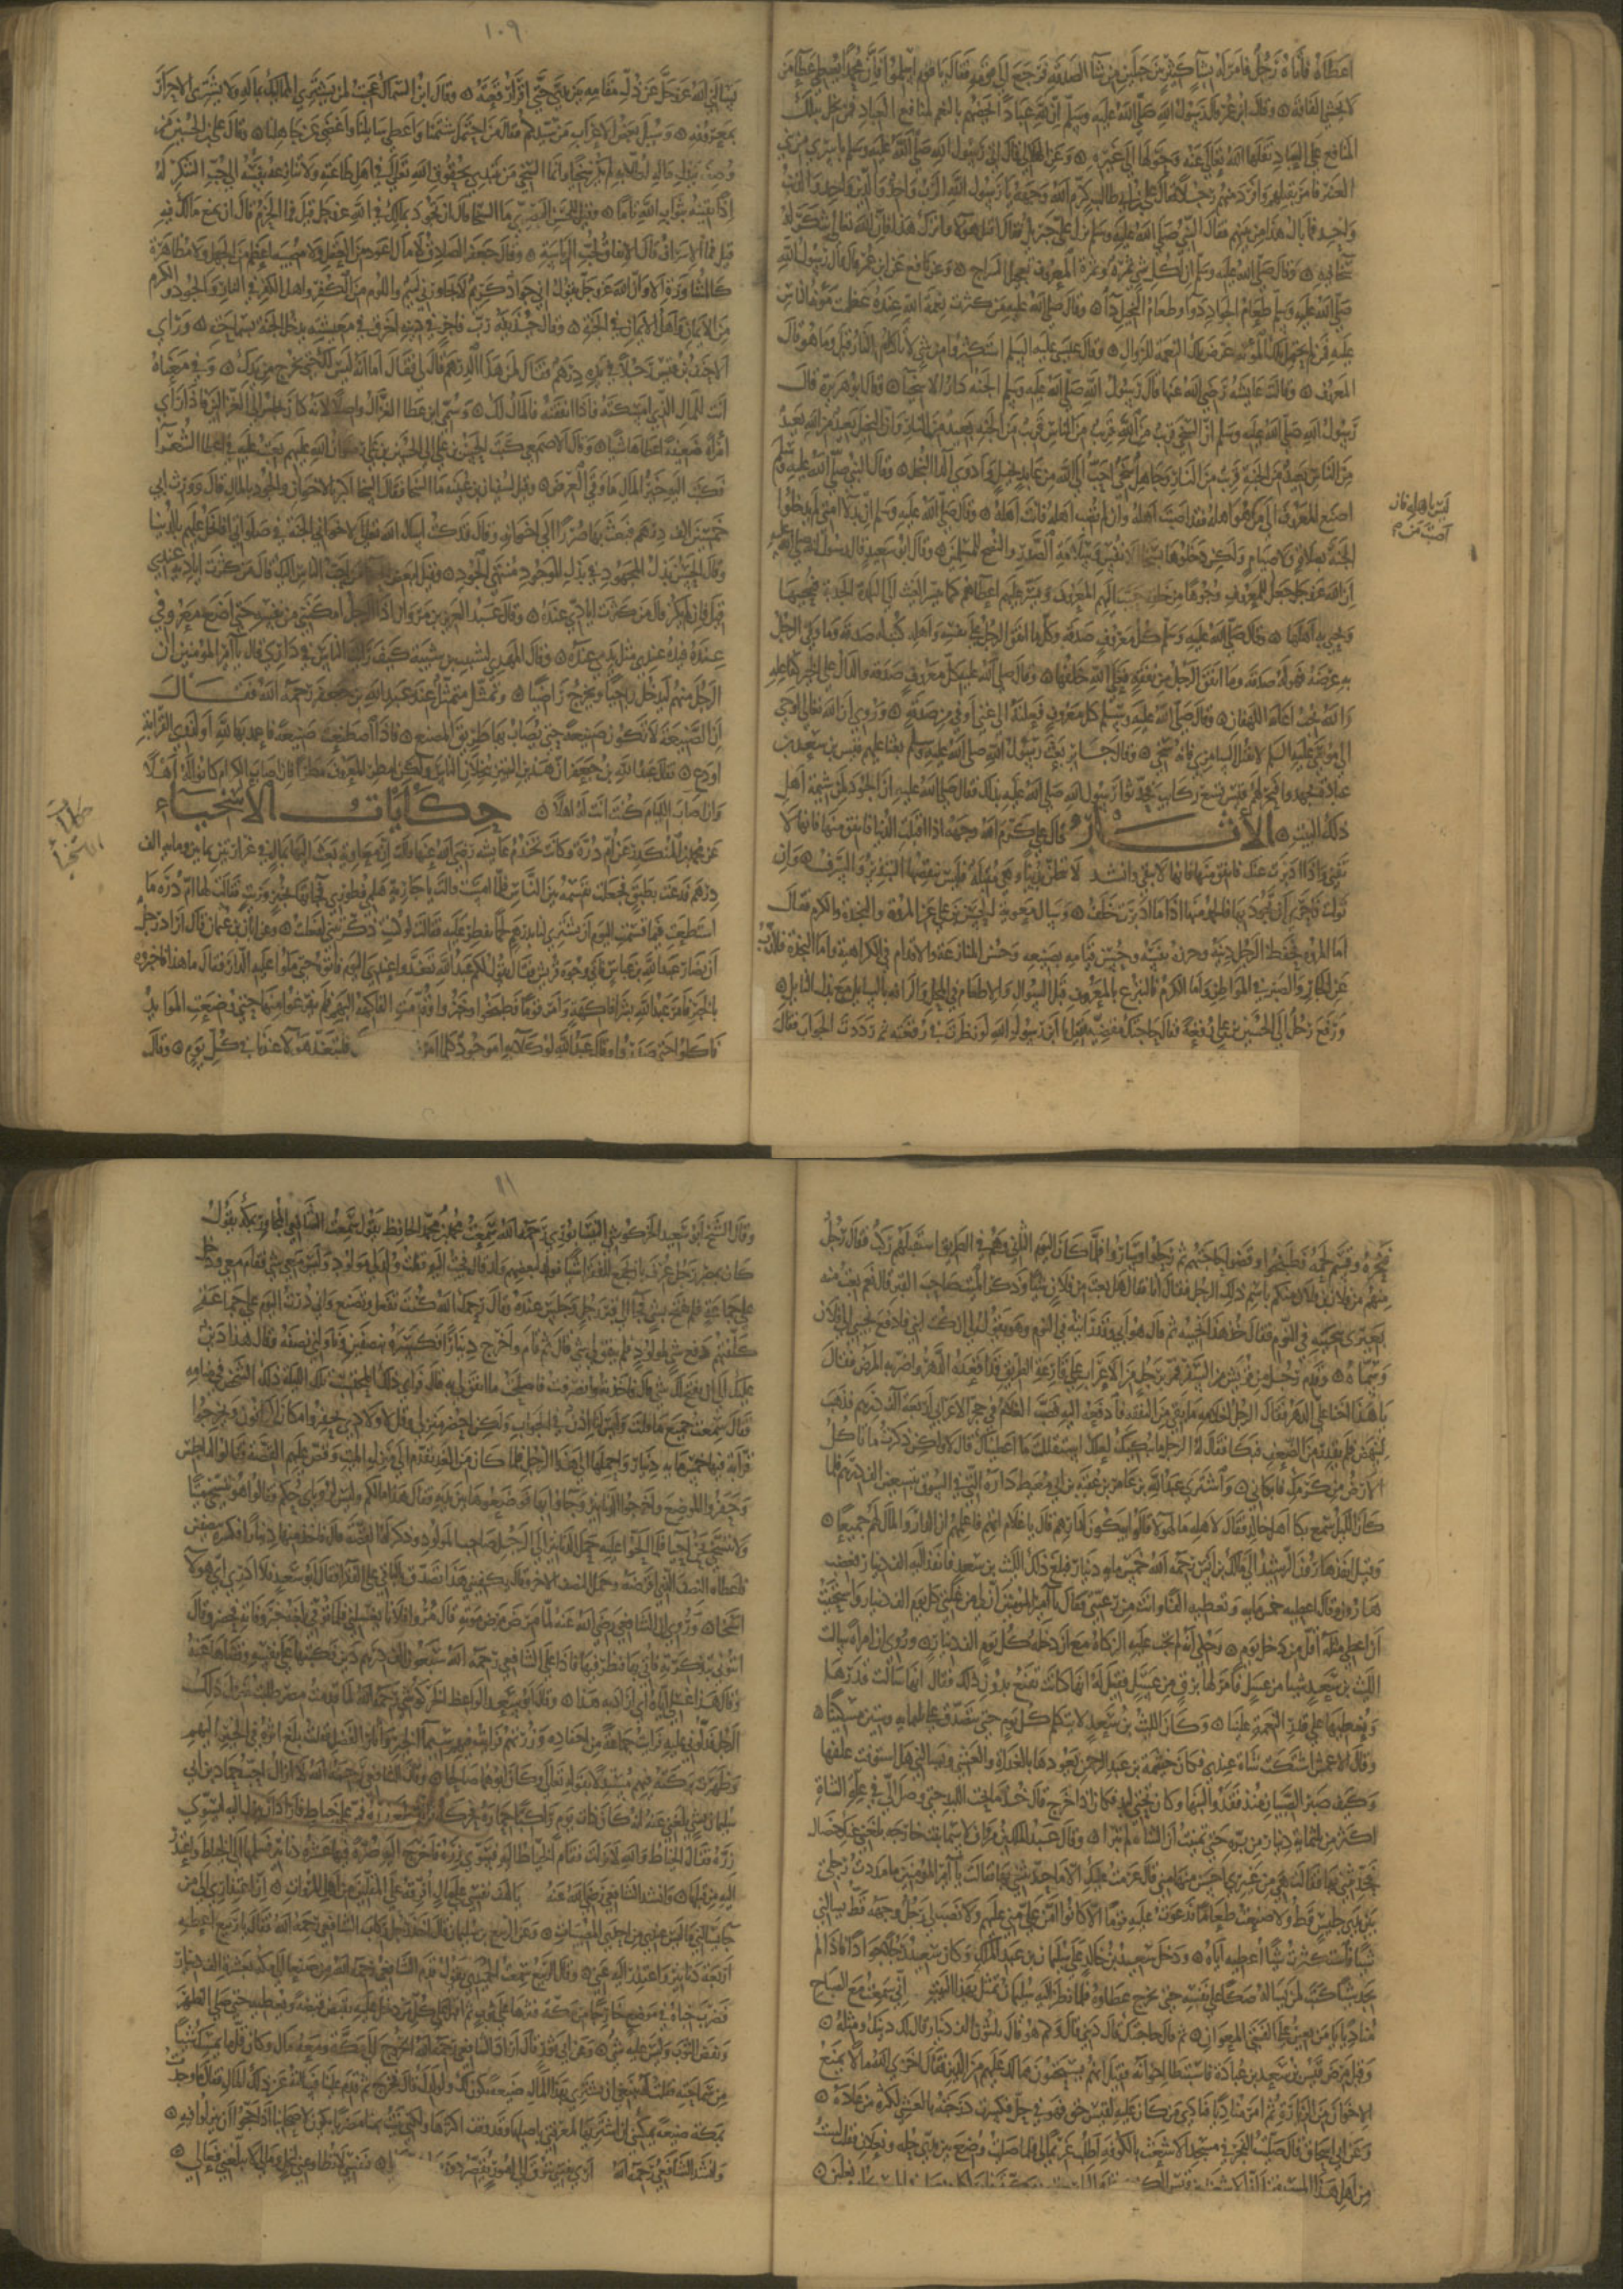 اعطاه فاتاه رجل فامر له بشآ كثير بين جبلين من شآ الصدقة فرجع الى قومه فقال يا قوم اسلموا فان محمدا يعطي عطآ من
لا يخشى الفاقة ٥ وقال ابن عمر قال رسول الله صلى الله عليه وسلم ان لله عبادا اختصهم بالنعم لمنافع العباد فمن بخل بتلك
المنافع على العباد نقلها الله تعالى عنه وحولها الى غيره ٥ وعن الهلالي قال اتي رسول الله صلى الله عليه وسلم باسرى من بني
العنبر فامر بقتلهم وافرد منهم رجلا فقال علي بن ابي طالب كرم الله وجهه يا رسول الله الرب واحد والدين واحد والذنب
واحد فما بال هذا من بينهم فقال النبي صلى الله عليه وسلم نزل علي جبريل فقال اقتل هولا واترك هذا فان الله تعالى شكر له
سخآ فيه ٥ وقال صلى الله عليه وسلم ان لكل شي ثمرة وثمرة المعروف تعجيل السراح ٥ وعن نافع عن ابن عمر قال قال رسول الله
صلى الله عليه وسلم طعام الجواد دوآ وطعام البخيل دآ ٥ وقال صلى الله عليه من كثرت نعمة الله عنده عظمت مؤنة الناس
عليه فمن لم يحتمل تلك المؤنة عرض تلك النعمة للزوال ٥ وقال عيسى عليه السلم استكثروا من شي لا تاكله النار قيل وما هو قال
المعروف ٥ وقالت عايشه رضي الله عنها قال رسول الله صلى الله عليه وسلم الجنة دار الاسخيآ ٥ وقال ابو هريرة قال
رسول الله صلى الله عليه وسلم ان السخي قريب من الله قريب من الناس قريب من الجنة بعيد من النار وان البخيل بعيد من الله بعيد
من الناس بعيد من الجنة قريب من النار وجاهل سخي احب الى الله من عابد بخيل وادوى الدآ البخل ٥ وقال النبي صلى الله عليه وسلم
اصنع المعروف الى من هو اهله فقد اصبت اهله وان لم تصب اهله فانت اهله ٥ وقال صلى الله عليه وسلم ان بدلآ امتي لم يدخلوا
الجنة بصلاة ولا صيام ولكن دخلوها بسخآ الانفس وسلامة الصدر والنصح للمسلمين ٥ وقال ابو سعيد قال رسول الله صلى الله عليه
ان الله عز وجل جعل للمعروف وجوها من خلقه حبب اليهم المعروف ويسر عليهم اعطاهم كما يسر الغيث الى البلدة الجدبة فيحييها
ويحيي به اهلها ٥ وقال صلى الله عليه وسلم كل معروف صدقة وكل ما انفق الرجل على نفسه واهله كتب له صدقة وما وقى الرجل
به عرضه فهو له صدقة وما انفق الرجل من نفقة فعلى الله خلفها ٥ وقال صلى الله عليه كل معروف صدقة والدال على الخير كفاعله
والله يحب اغاثة اللهفان ٥ وقال صلى الله عليه وسلم كل معروف فعلته الى غني او فقير صدقة ٥ وروي ان الله تعالى اوحى
الى موسى عليه السلم لا تقتل السامري فانه سخي ٥ وقال جابر بعث رسول الله صلى الله عليه وسلم بعثا عليهم قيس بن سعد بن
عبادة فجهدوا فنحر لهم قيس تسع ركايب فحدثوا رسول الله صلى الله عليه بذلك فقال صلى الله عليه ان الجود لمن شيمة اهل
ذلك البيت ٥ الاثار قال علي كرم الله وجهه اذا اقبلت الدنيا فانفق منها فانها لا
تفنى واذا ادبرت عنك فانفق منها فانها لا تبقى وانشد لا تبخلن بدنيا وهي مقبلة فليس ينقصها التبذير والسرف ٥ وان
تولت فاحرى ان تجود بها فالحمد منها اذا ما ادبرت خلف ٥ وسال معوية الحسن بن علي عن المروة والنجدة والكرم فقال
اما المروة فحفظ الرجل دينه وحرز نفسه وحسن قيامه بضيفه وحسن المنازعة والاقدام في الكراهية واما النجدة فالذب
عن الجار والصبر في المواطن واما الكرم فالتبرع بالمعروف قبل السوال والاطعام في المحل والرافه بالسايل مع بذل النايل ٥
ورفع رجل الى الحسن بن علي رقعة فقال حاجتك مقضية فقيل يا ابن رسول الله لو نظرت في رقعته ثم رددت الجواب فقال
ليس باهله فان
١٠٩
يسالني الله عز وجل عن ذل مقامه بين يدي حتى اقرا رقعته ٥ وقال ابن السماك عجبت لمن يشتري المماليك بماله ولا يشتري الاحرار
بمعروفه ٥ وسيل بعض الاعراب من سيدكم فقال من احتمل شتمنا واعطى سايلنا واغضى عن جاهلنا ٥ وقال علي بن الحسين من
وصف ببذل ماله لطلابه لم يكن سخيا وانما السخي من يبتدي بحقوق الله تعالى في اهل طاعته ولا تنازعه نفسه الى حب الشكر له
اذا تيقنه بثواب الله تاما ٥ وقيل للحسن البصري ما السخآ قال ان تجود بمالك في الله عز وجل قيل فما الحزم قال ان تمنع مالك فيه
قيل فما الاسراف قال الانفاق لحب الرياسة ٥ وقال جعفر الصادق لا مال اعود من العقل ولا مصيبة اعظم من الجهل ولا مظاهرة
كالمشاورة الا وان الله عز وجل يقول اني جواد كريم لا يجاورني لئيم واللوم من الكفر واهل الكفر في النار والجود والكرم
من الايمان واهل الايمان في الجنة ٥ وقال حذيفة رب فاجر في دينه اخرق في معيشته يدخل الجنة بسماحته ٥ وراى
الاحنف بن قيس رجلا في يده درهم فقال لمن هذا الدرهم قال لي فقال اما انه ليس لك حتى يخرج من يدك ٥ وفي معناه
انت للمال اذا امسكته فاذا انفقته فالمال لك ٥ وسمي ابن عطا الغزال واصلا لانه كان يجلس الى الغزالين فاذا راى
امراة ضعيفة اعطاها شيا ٥ وقال الاصمعي كتب الحسن بن علي الى الحسين بن علي رضوان الله عليهم يعتب عليه في اعطا الشعرآ
فكتب اليه خير المال ما وقي به العرض ٥ وقيل لسفيان بن عيينه ما السخآ فقال السخآ البر بالاخوان والجود بالمال قال وورث ابي
خمسين الف درهم فبعث بها صررا الى اخوانه وقال قد كنت اسال الله تعالى لاخواني الجنة في صلواتي افابخل عليهم بالدنيا
وقال الحسن بذل المجهود في بذل الموجود منتهى الجود ٥ وقيل لبعض من احب الناس اليك قال من كثرت اياديه عندي
قيل فان لم يكن قال من كثرت ايادي عنده ٥ وقال عبد العزيز بن مروان اذا الرجل امكنني من نفسه حتى اضع معروفي
عنده فيده عندي مثل يدي عنده ٥ وقال المهدي لشبيب بن شيبة كيف رايت الناس في داري قال يا امير المؤمنين ان
الرجل منهم ليدخل راجيا ويخرج راضيا ٥ وتمثل متمثل عند عبد الله بن جعفر رحمه الله فقال
ان الصنيعة لا تكون صنيعة حتى يصاب بها طريق المصنع ٥ فاذا اصطنعت صنيعة فاعمد بها لله او لذوي القرابة
او دع ٥ فقال عبد الله بن جعفر ان هذين البيتين يبخلان الناس ولكن امطر المعروف مطرا فان اصاب الكرام كانوا له اهلا
وان اصاب اللئام كنت انت له اهلا ٥ حكايات الاسخياء
عن محمد بن المنكدر عن ام درة وكانت تخدم عايشة رضي الله عنها قالت ان معاوية بعث اليها بمال في غرارتين ثمانين وماية الف
درهم فدعت بطبق فجعلت تقسمه بين الناس فلما امست قالت يا جارية هلمي فطوري فجاتها بخبز وزيت فقالت لها ام درة ما
استطعت فيما قسمت اليوم ان تشتري لنا بدرهم لحما نفطر عليه فقالت لو كنت ذكرتني لفعلت ٥ وعن ابان بن عثمان قال اراد رجل
ان يضار عبد الله بن عباس فاتى وجوه قريش فقال يقول لكم عبد الله تغدوا عندي اليوم فاتوه حتى ملوا عليه الدار فقال ما هذا فاخبروه
بالخبر فامر عبد الله بشرآ فاكهة وامر قوما فطبخوا وخبزوا وقدمت الفاكهة اليهم فلم يفرغوا منها حتى وضعت الموايد
فاكلوا حتى صدروا وقال عبد الله لوكلايه اموجود كلما اردت فليتغد هولا عندنا في كل يوم ٥ وقال
حكايات
الاسخيآ
نحره وقسم لحمه فطبخوا وقضوا حاجتهم ثم رحلوا وساروا فلما كان اليوم الثاني وهم في الطريق استقبلهم ركب فقال رجل
منهم من فلان بن فلان منكم باسم ذلك الرجل فقال انا فقال هل بعت من فلان شيا وذكر الميت صاحب القبر قال نعم بعت منه
بعيري بنجيبه في النوم فقال خذ هذا نجيبه ثم قال هو ابي وقد رايته في النوم وهو يقول لي ان كنت ابني فادفع نجيبي الى فلان
وسماه ٥ وقدم رجل من قريش من السفر فمر برجل من الاعراب على قارعة الطريق قد اقعده الدهر واضر به المرض فقال
يا هذا اعنا على الدهر فقال الرجل لغلامه ما بقي من النفقة فادفعه اليه فصب الغلام في حجر الاعرابي اربعة الاف درهم فذهب
لينهض فلم يقدر من الضعف فبكا فقال له الرجل ما يبكيك لعلك استقللت ما اعطيناك قال لا ولكن ذكرت ما تاكل
الارض من كرمك فابكاني ٥ واشترى عبد الله بن عامر من خالد بن عقبة بن ابي معيط داره التي في السوق بتسعين الف درهم فلما
كان الليل سمع بكا اهل خالد فقال لاهله ما لهولا قالوا يبكون لدارهم قال يا غلام ايتهم فاعلمهم ان الدار والمال لهم جميعا ٥
وقيل انفذ هارون الرشيد الى مالك بن انس رحمه الله خمس ماية دينار فبلغ ذلك الليث بن سعد فانفذ اليه الف دينار فغضب
هارون وقال اعطيه خمس ماية وتعطيه الفا وانت من رعيتي فقال يا امير المؤمنين ان لي من غلتي كل يوم الف دينار واستحييت
ان اعطي مثله اقل من دخل يوم ٥ وحكي انه لم تجب عليه الزكاة مع ان دخله كل يوم الف دينار ٥ وروي ان امراة سالت
الليث بن سعد شيا من عسل فامر لها بزق من عسل فقيل له انها كانت تقنع بدون ذلك فقال انها سالت قدر حاجتها
ونعطيها على قدر النعمة علينا ٥ وكان الليث بن سعد لا يتكلم كل يوم حتى يتصدق على ثلثماية وستين مسكينا ٥
وقال الاعمش اشتكت شاة عندي فكان خيثمة بن عبد الرحمن يعودها بالغداة والعشي ويسالني هل استوفت علفها
وكيف صبر الصبيان منذ فقدوا لبنها وكان تحتي لبد فكان اذا خرج قال خذ ما تحت اللبد حتى وصل الي في علة الشاة
اكثر من ثلثماية دينار من بره حتى تمنيت ان الشاة لم تبرا ٥ وقال عبد الملك بن مروان لاسمآ بنت خارجة بلغني عنك خصال
فحدثني بها فقالت هي من غيري احسن منها مني قال عزمت عليك الا حدثتني بها فقالت يا امير المؤمنين ما مددت رجلي
بين يدي جليس قط ولا صنعت طعاما قط فدعوت عليه قوما الا كانوا امن علي مني عليهم ولا نصب لي رجل وجهه قط يسالني
شيا فاستكثرت شيا اعطيه اياه ٥ ودخل سعيد بن خالد على سليمان بن عبد الملك وكان سعيد رجلا جوادا فاذا لم
يجد شيا كتب لمن ساله صكا على نفسه حتى يخرج عطاوه فلما نظر اليه سليمان تمثل بهذا البيت اني سمعت مع الصباح
مناديا يا من يعين على الفتى المعوان ٥ ثم قال حاجتك قال ديني قال وكم هو قال ثلثون الف دينار قال لك دينك ومثله ٥
وقيل مرض قيس بن سعد بن عبادة فاستبطا اخوانه فقيل انهم يستحيون مما لك عليهم من الدين فقال اخزى الله مالا يمنع
الاخوان من الزيارة ثم امر مناديا فنادى من كان عليه لقيس حق فهو في حل فكسرت درجته بالعشي لكثرة من عاده ٥
وعن ابي اسحاق قال صليت الفجر في مسجد الاشعث بالكوفة اطلب غريما لي فلما صليت وضع بين يدي حلة ونعلان فقلت لست
من اهل هذا المسجد
١١
وقال الشيخ ابو سعيد الخركوشي النيسابوري رحمه الله سمعت محمد بن محمد الحافظ يقول سمعت الشافعي المجاور بمكة يقول
كان بمصر رجل عرف بان يجمع للفقرآ شيا فولد لبعضهم ولد قال فجيت اليه وقلت ولد لي مولود وليس معي شي فقام معي ودخل
على جماعة فلم يفتح بشي فجآ الى قبر رجل وجلس عنده وقال رحمك الله كنت تفعل وتصنع واني درت اليوم على جماعة
كلفتهم دفع شي لمولود فلم يتفق لي شي قال ثم قام واخرج دينارا فكسره نصفين وناولني نصفه وقال هذا دين
عليك الى ان يفتح لك شي قال فاخذته وانصرفت فاصلحت ما اتفق لي به قال فراى ذلك المحتسب تلك الليلة ذلك الشخص في منامه
فقال سمعت جميع ما قلت وليس لنا اذن في الجواب ولكن احضر منزلي وقل لاولادي يحفروا مكان الكانون ويخرجوا
قرابة فيها خمس ماية دينار واحملها الى هذا الرجل فلما كان من الغد تقدم الى منزل الميت وقص عليهم القصة فقالوا له اجلس
وحفروا الموضع واخرجوا الدنانير وجاوا بها فوضعوها بين يديه فقال هذا مالكم وليس لروياي حكم فقالوا هو يتسخى ميتا
ولا نتسخى نحن احيا فلما الحوا عليه حمل الدنانير الى الرجل صاحب المولود وذكر له القصة قال فاخذ منها دينارا فكسره نصفين
فاعطاه النصف الذي اقرضه وحمل النصف الاخر وقال يكفيني هذا تصدق بالباقي على الفقرآ فقال ابو سعيد فلا ادري اي هولا
اسخى ٥ وروي ان الشافعي رضي الله عنه لما مرض مرض موته قال مروا فلانا يغسلني فلما توفي بلغه خبر وفاته فحضر وقال
ايتوني بتذكرته فاتي بها فنظر فيها فاذا على الشافعي رحمه الله سبعون الف درهم دين فكتبها على نفسه وقضاها عنه
وقال هذا غسلي اياه اي اراد به هذا ٥ وقال ابو سعيد الواعظ الخركوشي رحمه الله لما قدمت مصر طلبت منزل ذلك
الرجل فدلوني عليه فرايت جماعة من احفاده وزرتهم فرايت فيهم سيمآ الخير واثار الفضل فقلت بلغ اثره في الخير اليهم
وظهرت بركته فيهم مستدلا بقوله تعالى وكان ابوهما صالحا ٥ وقال الشافعي رحمه الله لا ازال احب حماد بن ابي
سليمان لشي بلغني عنه انه كان ذات يوم راكبا حماره فحركه فانقطع زره فمر على خياط فاراد ان ينزل اليه ليسوي
زره فقال الخياط والله لا نزلت فقام الخياط اليه فسوى زره فاخرج اليه صرة فيها عشرة دنانير فسلمها الى الخياط واعتذر
اليه من قلتها ٥ وانشد الشافعي رضي الله عنه يا لهف نفسي على مال افرقه على المقلين من اهل المروات ٥ ان اعتذاري الى من
جآ يسالني ما ليس عندي من احدى المصيبات ٥ وعن الربيع بن سليمان قال اخذ رجل بركاب الشافعي رحمه الله فقال يا ربيع اعطيه
اربعة دنانير واعتذر اليه عني ٥ وقال الربيع سمعت الحميدي يقول قدم الشافعي رحمه الله من صنعآ الى مكة بعشرة الف دينار
فضرب خباه في موضع خارجا من مكة ونثرها على ثوب ثم اقبل على كل من دخل عليه يقبض قبضة ويعطيه حتى صلى الظهر
ونفض الثوب وليس عليه شي ٥ وعن ابي ثور قال اراد الشافعي رحمه الله الخروج الى مكة ومعه مال وكان قلما يمسك شيا
من سماحته فقلت له ينبغي ان تشتري بهذا المال ضيعة تكون لك ولولدك قال فخرج ثم قدم علينا فسالته عن ذلك المال فقال ما وجدت
بمكة ضيعة يمكنني ان اشتريها لمعرفتي باصلها وقد وقف اكثرها ولكني بنيت بمنا مضربا يكون لاصحابنا اذا حجوا ان ينزلوا فيه ٥
وانشد الشافعي رحمه الله ارى نفسي تتوق الى امور يقصر دون ٥ فنفسي لا تطاوعني ببخل ومالي لا يبلغني فعالي ٥